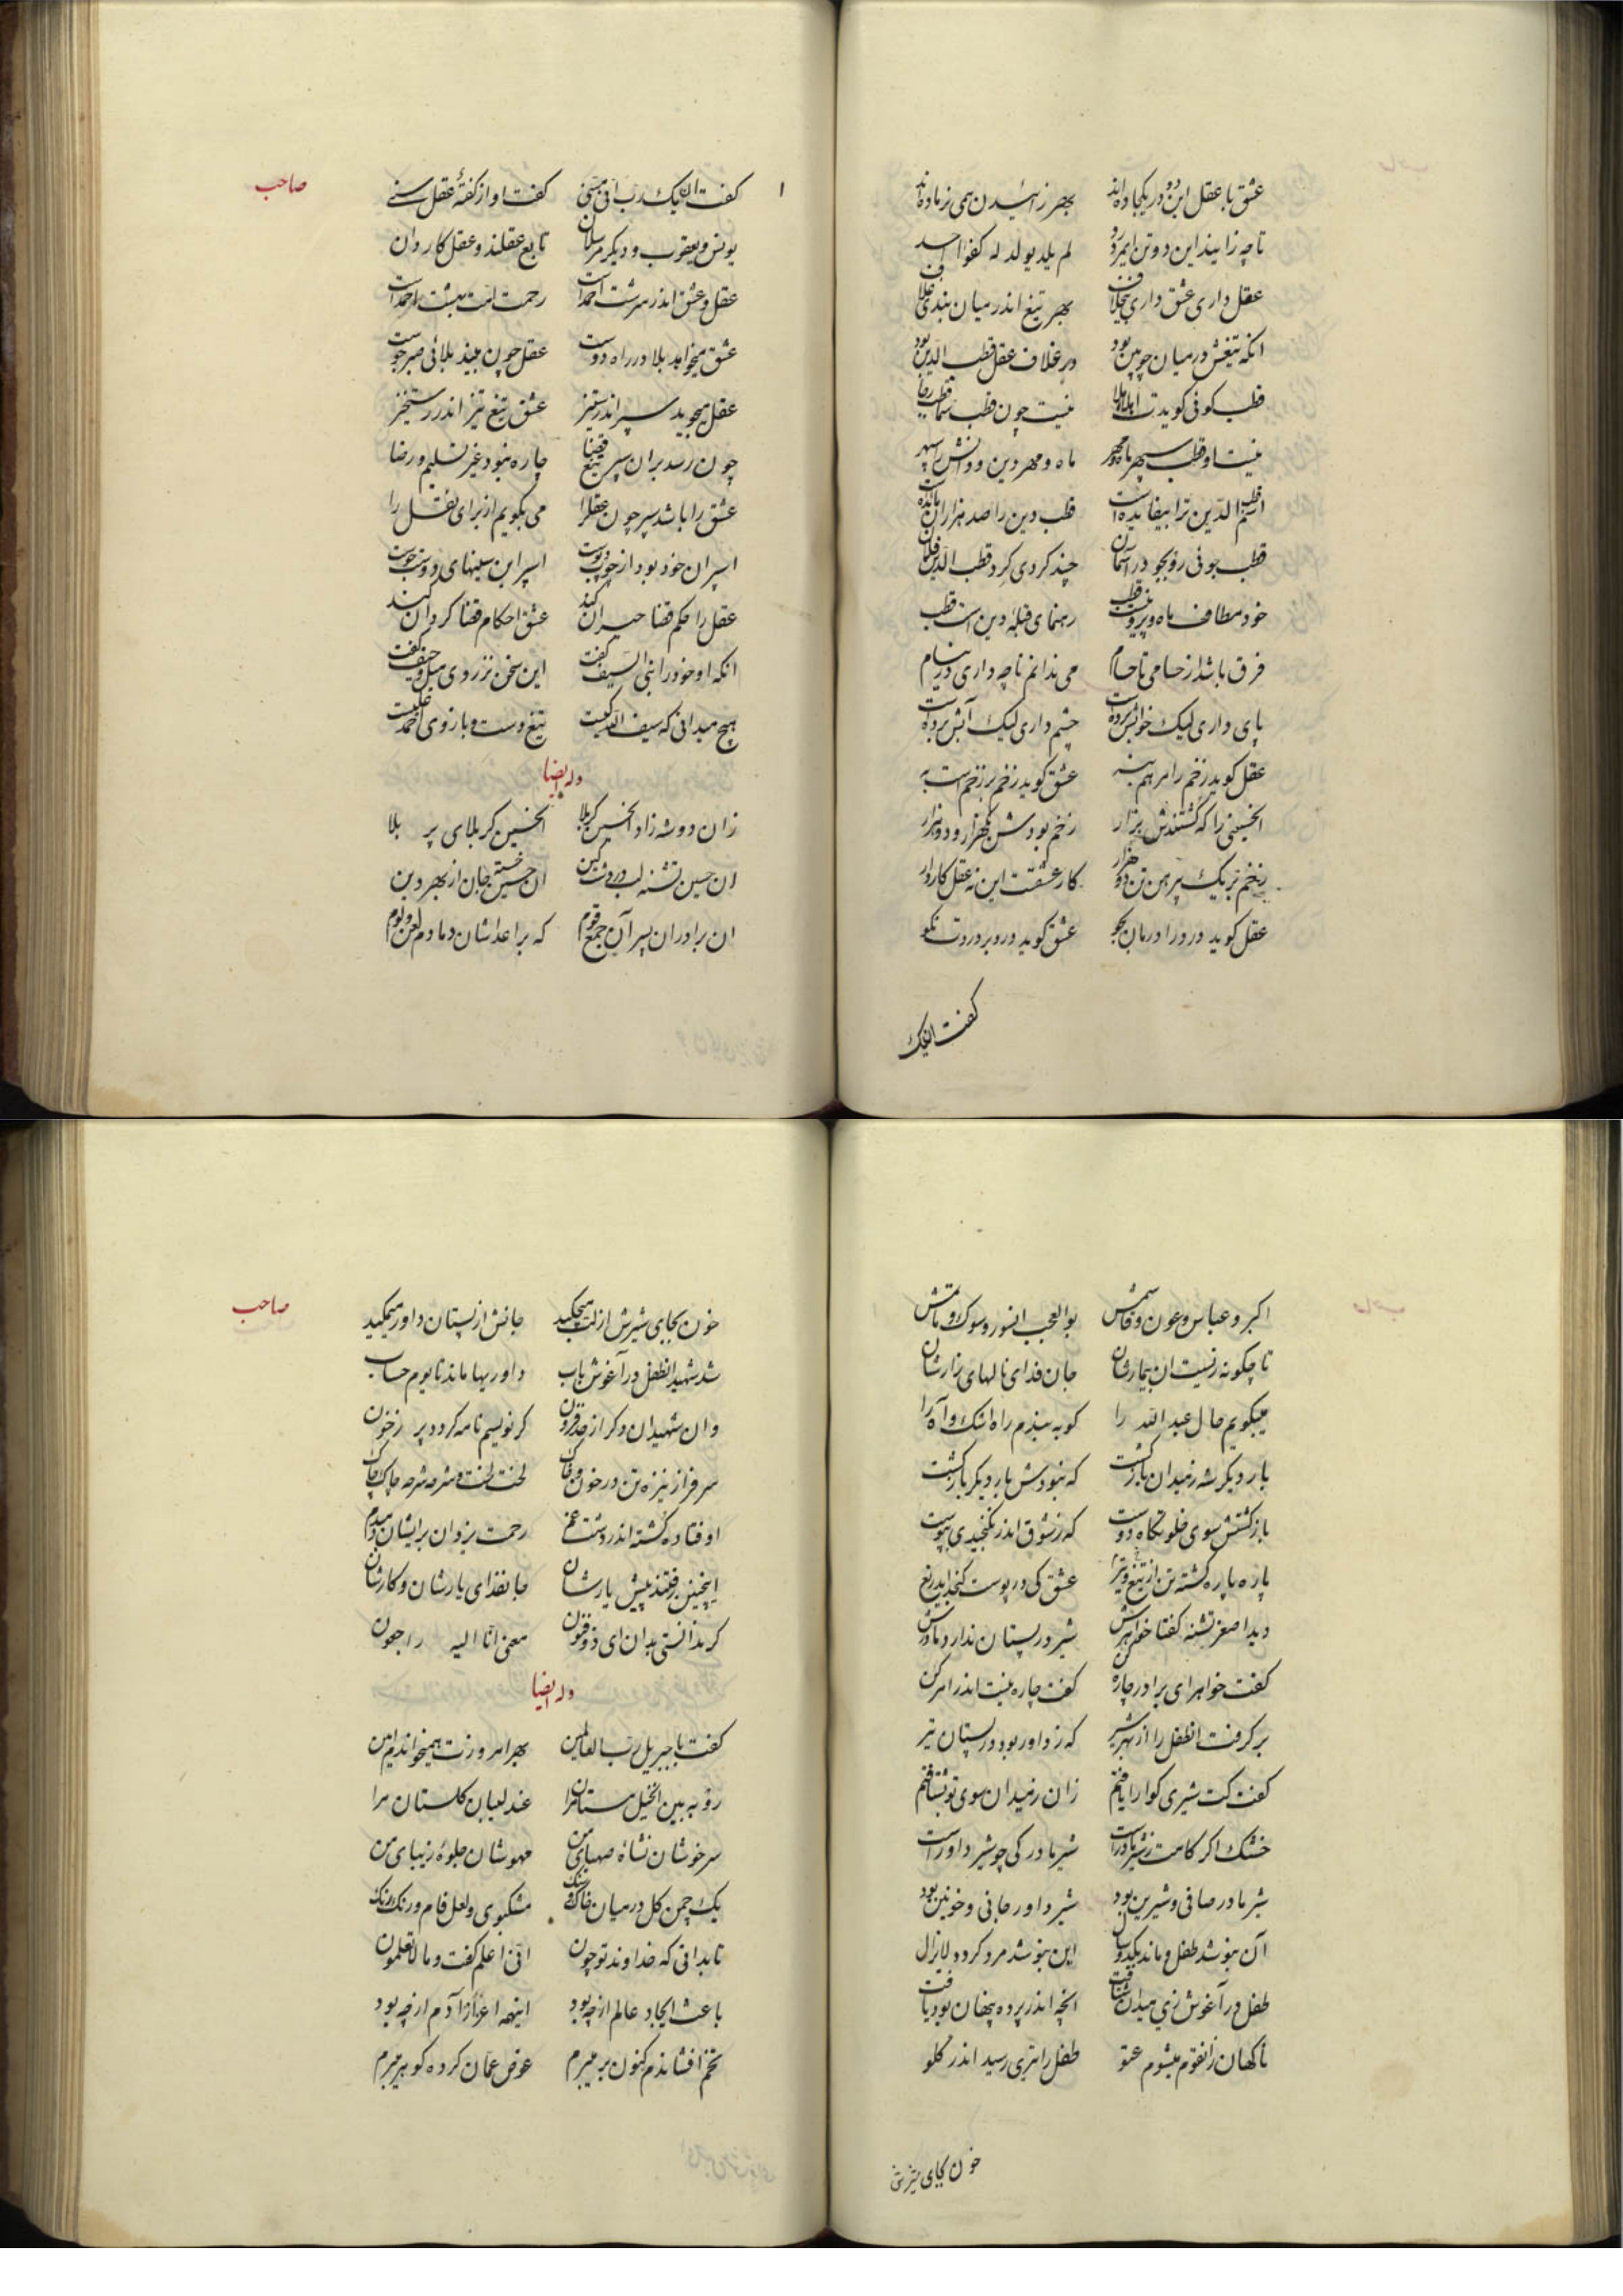 عشق با عقل این دو در یکجا ده اند بهر زائیدن همی نر ماده اند
تا چه زایند این دو تن ایمرد رو لم یلد یولد له کفوا احد
عقل داری عشق داری بیخلاف بهر تیغ اندر میان بندی غلاف
انکه تیغش در میان چوبین بود در غلاف عقل قطب الدین بود
قطب کوفی کویدت نیست چون قطب
نیست او قطب سپهر ماه و مهر ماه و مهر دین و دانش را سپهر
الدین ترا بیفایده است قطب دین را صد هزاران
قطب جوئی رو بجو در آسمان چند کردی کرد قطب الدین فلان
خود مطاف ماه و پروین است قطب رهنمای قبله دین است قطب
فرق باشد از حسامی تا حسام می ندانم تا چه داری در نیام
پای داری لیک خوابش برده است چشم داری لیک آبش برده است
عقل کوید زخم را مرهم بنه عشق کوید زخم بر زخم است به
انحسینی را که کشتندش بزار زخم بودش یکهزار و دو هزار
زخم بر یک پیرهن تن دو هزار کار عشقت این نه عقل کاردار
عقل کوید درد را درمان بجو عشق کوید درد بر دردت نکو
کفت انیک
صاحب
۱
کفت انیک رب انی مسنی کفت او از کفتهٔ عقل سنی
یونس و یعقوب و دیکر مرسلان تابع عقلند و عقل کاردان
عقل و عشق اندر سرشت احمد است رحمت امت بهشت احمد است
عشق میخواهد بلا در راه دوست عقل چون بیند بلائی صبر جوست
عقل میجوید سپر اندر ستیز عشق تیغ تیز اندر رستخیز
چون رسد بر ان سپر تیغ قضا چاره نبود غیر تسلیم و رضا
عشق را باشد سپر چون عقلرا می بکویم از برای نقل را
اسپر ان خود بود از چوب و پوست اسپر این سینهای دوست دوست
عقل را حکم قضا حیران کند عشق احکام قضا کردان کند
انکه او خود را انبی السیف کفت این سخن نز روی میل و حیف کفت
هیچ میدانی که سیف الله کیست تیغ و دست و بازوی احمد علیست
وله ایضا
زان دو شه زاد انحسین کربلا انحسین کربلای پر بلا
ان حسین تشنه لب در دشت کین ان حسین خسته جان از بهر دین
ان برادران سپر آن جمع قوم که بر اعداشان دمادم لعن و لوم
اکبر و عباس و عون و قاسمش بوالعجب انسور و سوک و ماتمش
تا چکونه زیست ان بیمارشان جان فدای نالهای زارشان
میبکویم حال عبد الله را کو به بیندم راه اشک و آه را
بار دیکر شه ز میدان بازکشت که نبودش بار دیکر بازکشت
بازکشتش سوی خلوتکاه دوست که ز شوق اندر نکنجیدی بپوست
پاره پاره کشته تن از تیغ و تیر عشق کی در پوست کنجد
دید اصغر تشنه کفتا خواهرش شیر در پستان ندارد مادرش
کفت خواهر ای برادر چاره کن کفت چاره نیست اندر امر کن
بر کرفت انطفل را از بهر شیر که ز داور بود در پستان تیر
کفت کت شیری کوارا یافتم زان ز میدان سوی تو بشتافتم
خشک اکر کامت ز شیر مادر است شیر مادر کی چو شیر داور است
شیر مادر صافی و شیرین بود شیر داور جانی و خونین بود
آن بنوشد طفل و ماند یکدو سال این بنوشد مرد کردد لایزال
طفل در آغوش زی میدان شتافت انچه اندر پرده پنهان بود یافت
ناکهان زانقوم میشوم عتو طفل را تیری رسید اندر کلو
خون بجای شیرش
صاحب
خون بجای شیرش از لب میچکید جانش از پستان داور میمکید
شد شهید انطفل در آغوش باب داوریها ماند تا یوم حساب
وان شهیدان دکر از حد فزون کر نویسم نامه کردد پر ز خون
سر فراز نیزه تن در خون و خاک لخت لخت و شرحه شرحه چاک چاک
اوفتاده کشته اندر دشت غم رحمت یزدان برایشان دمبدم
اینچنین رفتند پیش یارشان جان فدای یارشان و کارشان
کر ندانستی بدان ای ذوفنون معنی انا الیه راجعون
وله ایضا
کفت با جبریل رب العالمین بهر امروزت همیخواندم امین
رو به بین انخیل مستان مرا عندلیبان کلستان مرا
سرخوشان نشاه صهبای من مهوشان جلوهٔ زیبای من
یک چمن کل در میان خاک و سنک مشکبوی و لعل فام و رنک رنک
تا بدانی که خداوند تو چون انی اعلم کفت و ما لا تعلمون
باعث ایجاد عالم از چه بود اینهمه اعزاز آدم از چه بود
تخم افشاندم کنون بر میبرم غوص عمان کرده کوهر میبرم